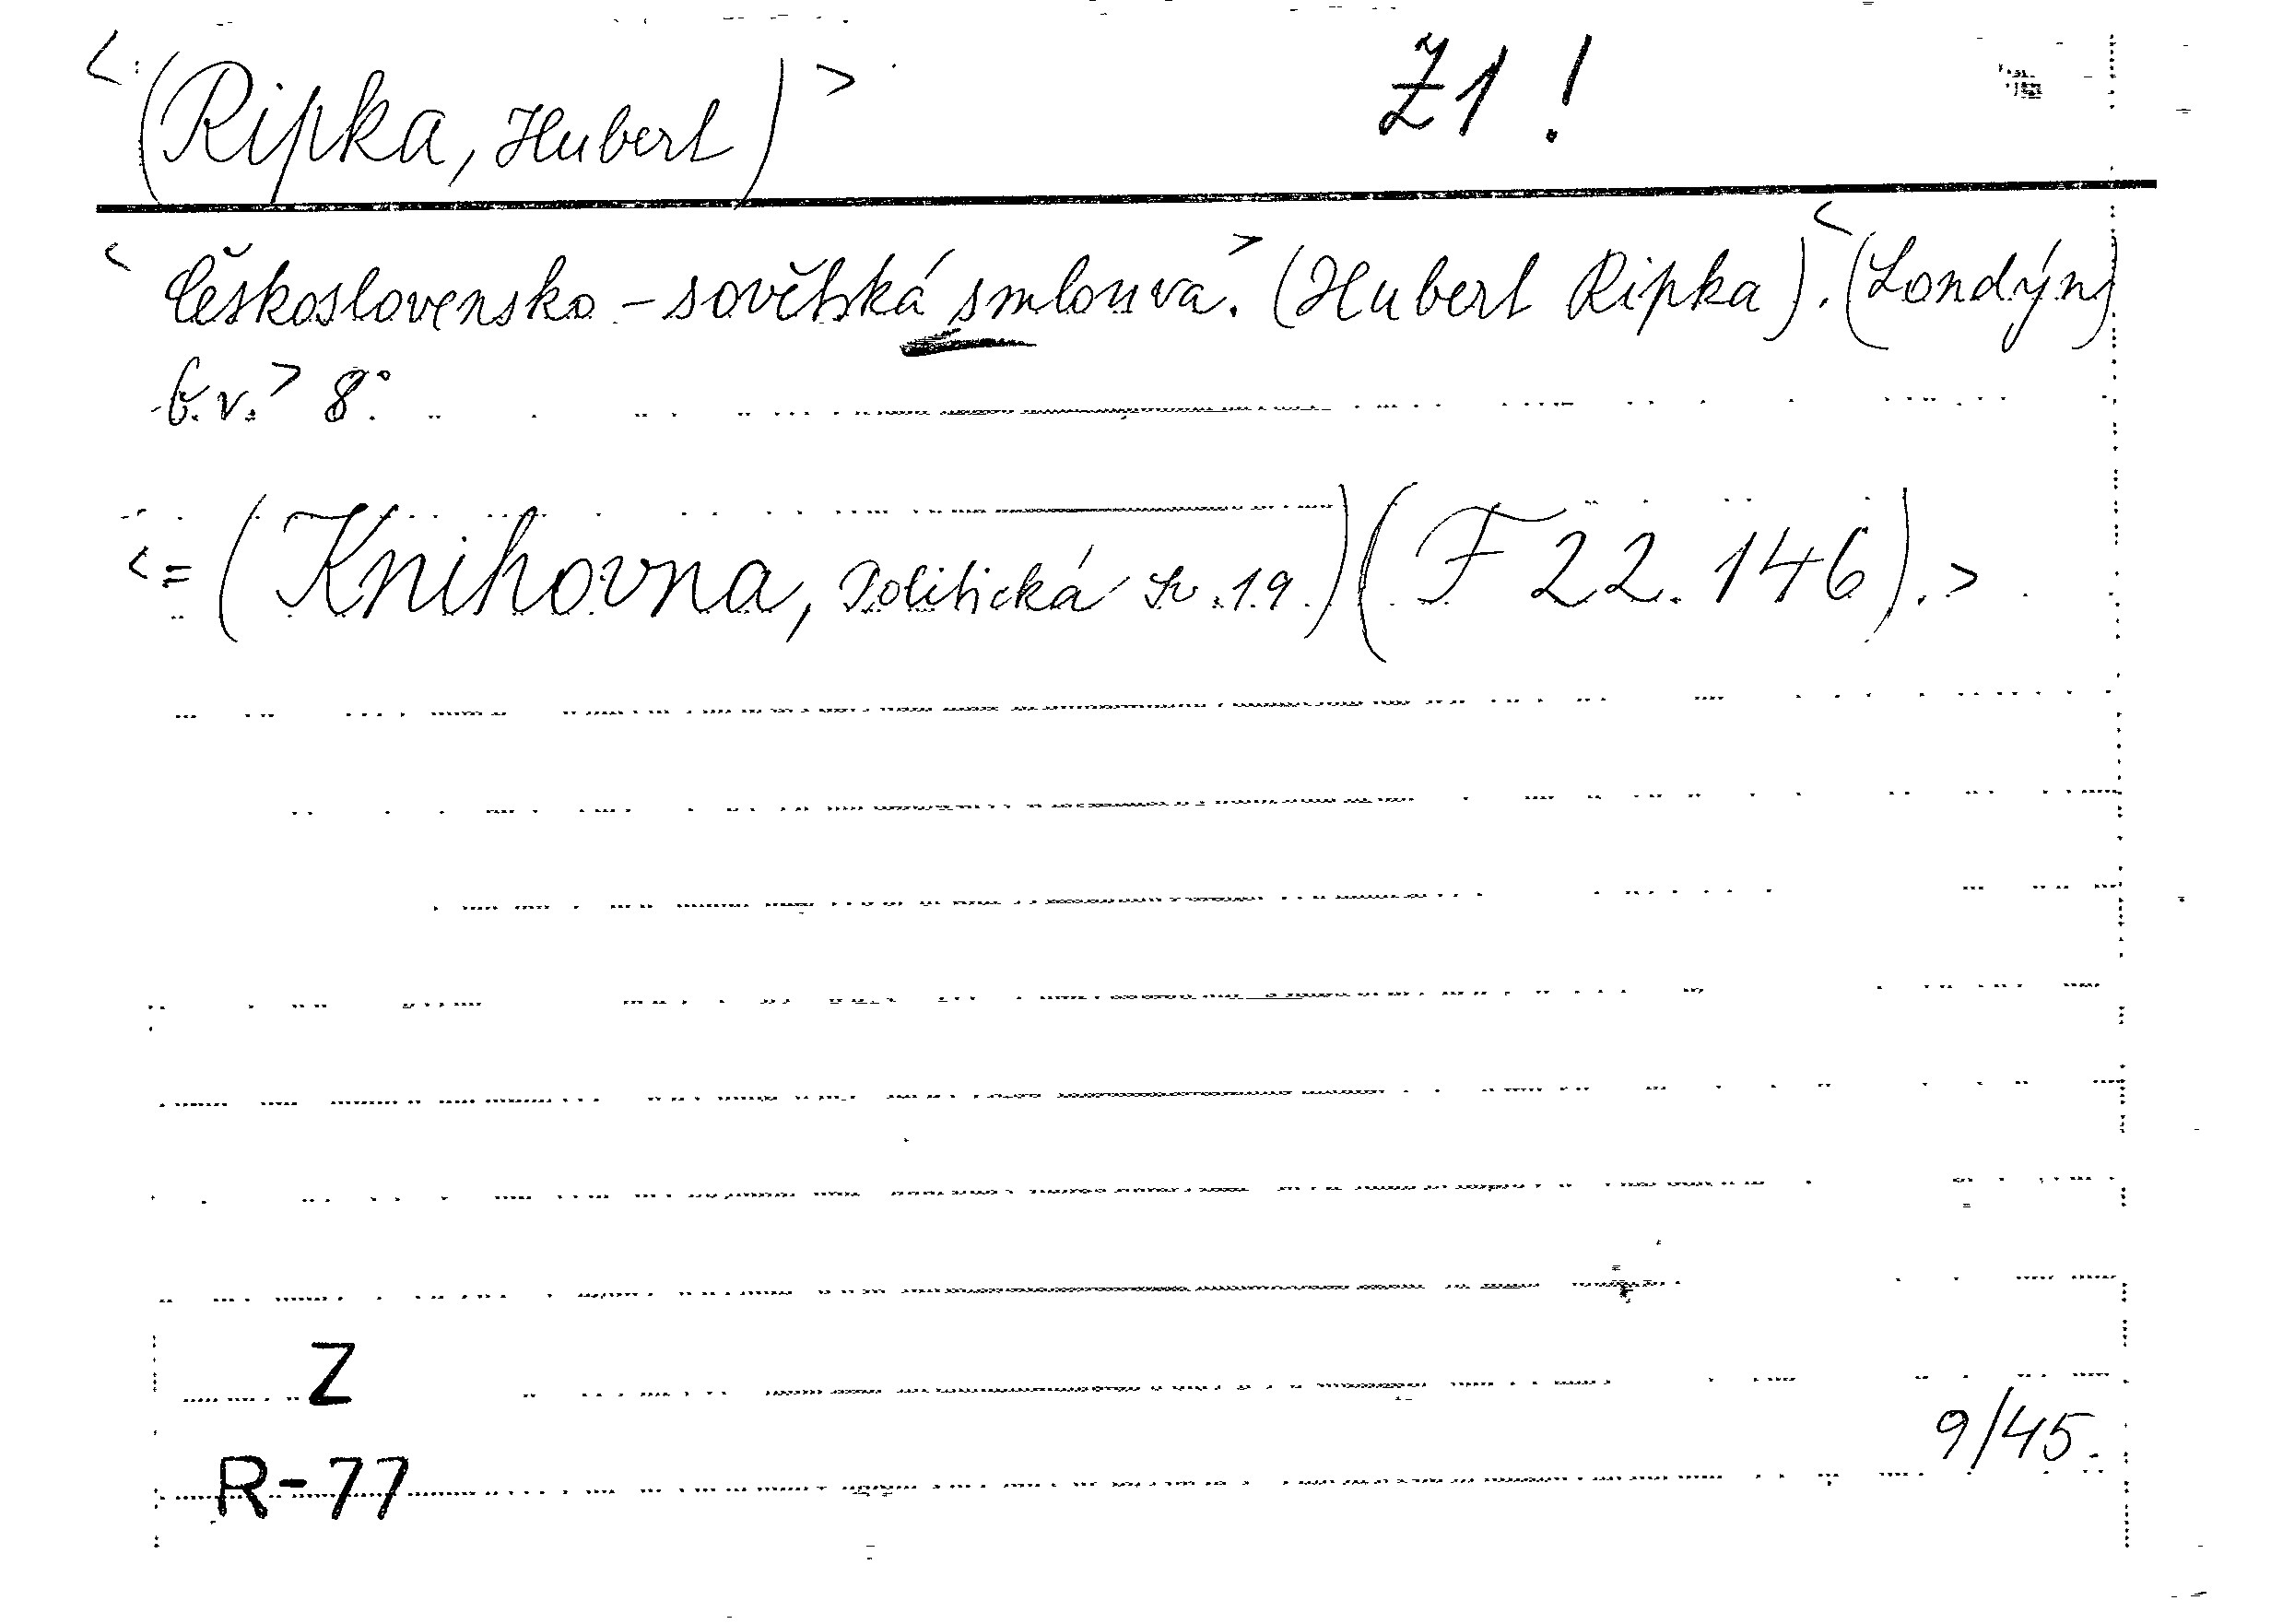 <(Ripka, Hubert)> Ž1!
<Československo-sovětská smlouva.> (Hubert Ripka). <(Londýn)
b.r.> 8°.
<=(Knihovna, Politická Sv.19.)(F 22.146).>
Z
9/45.
R-77